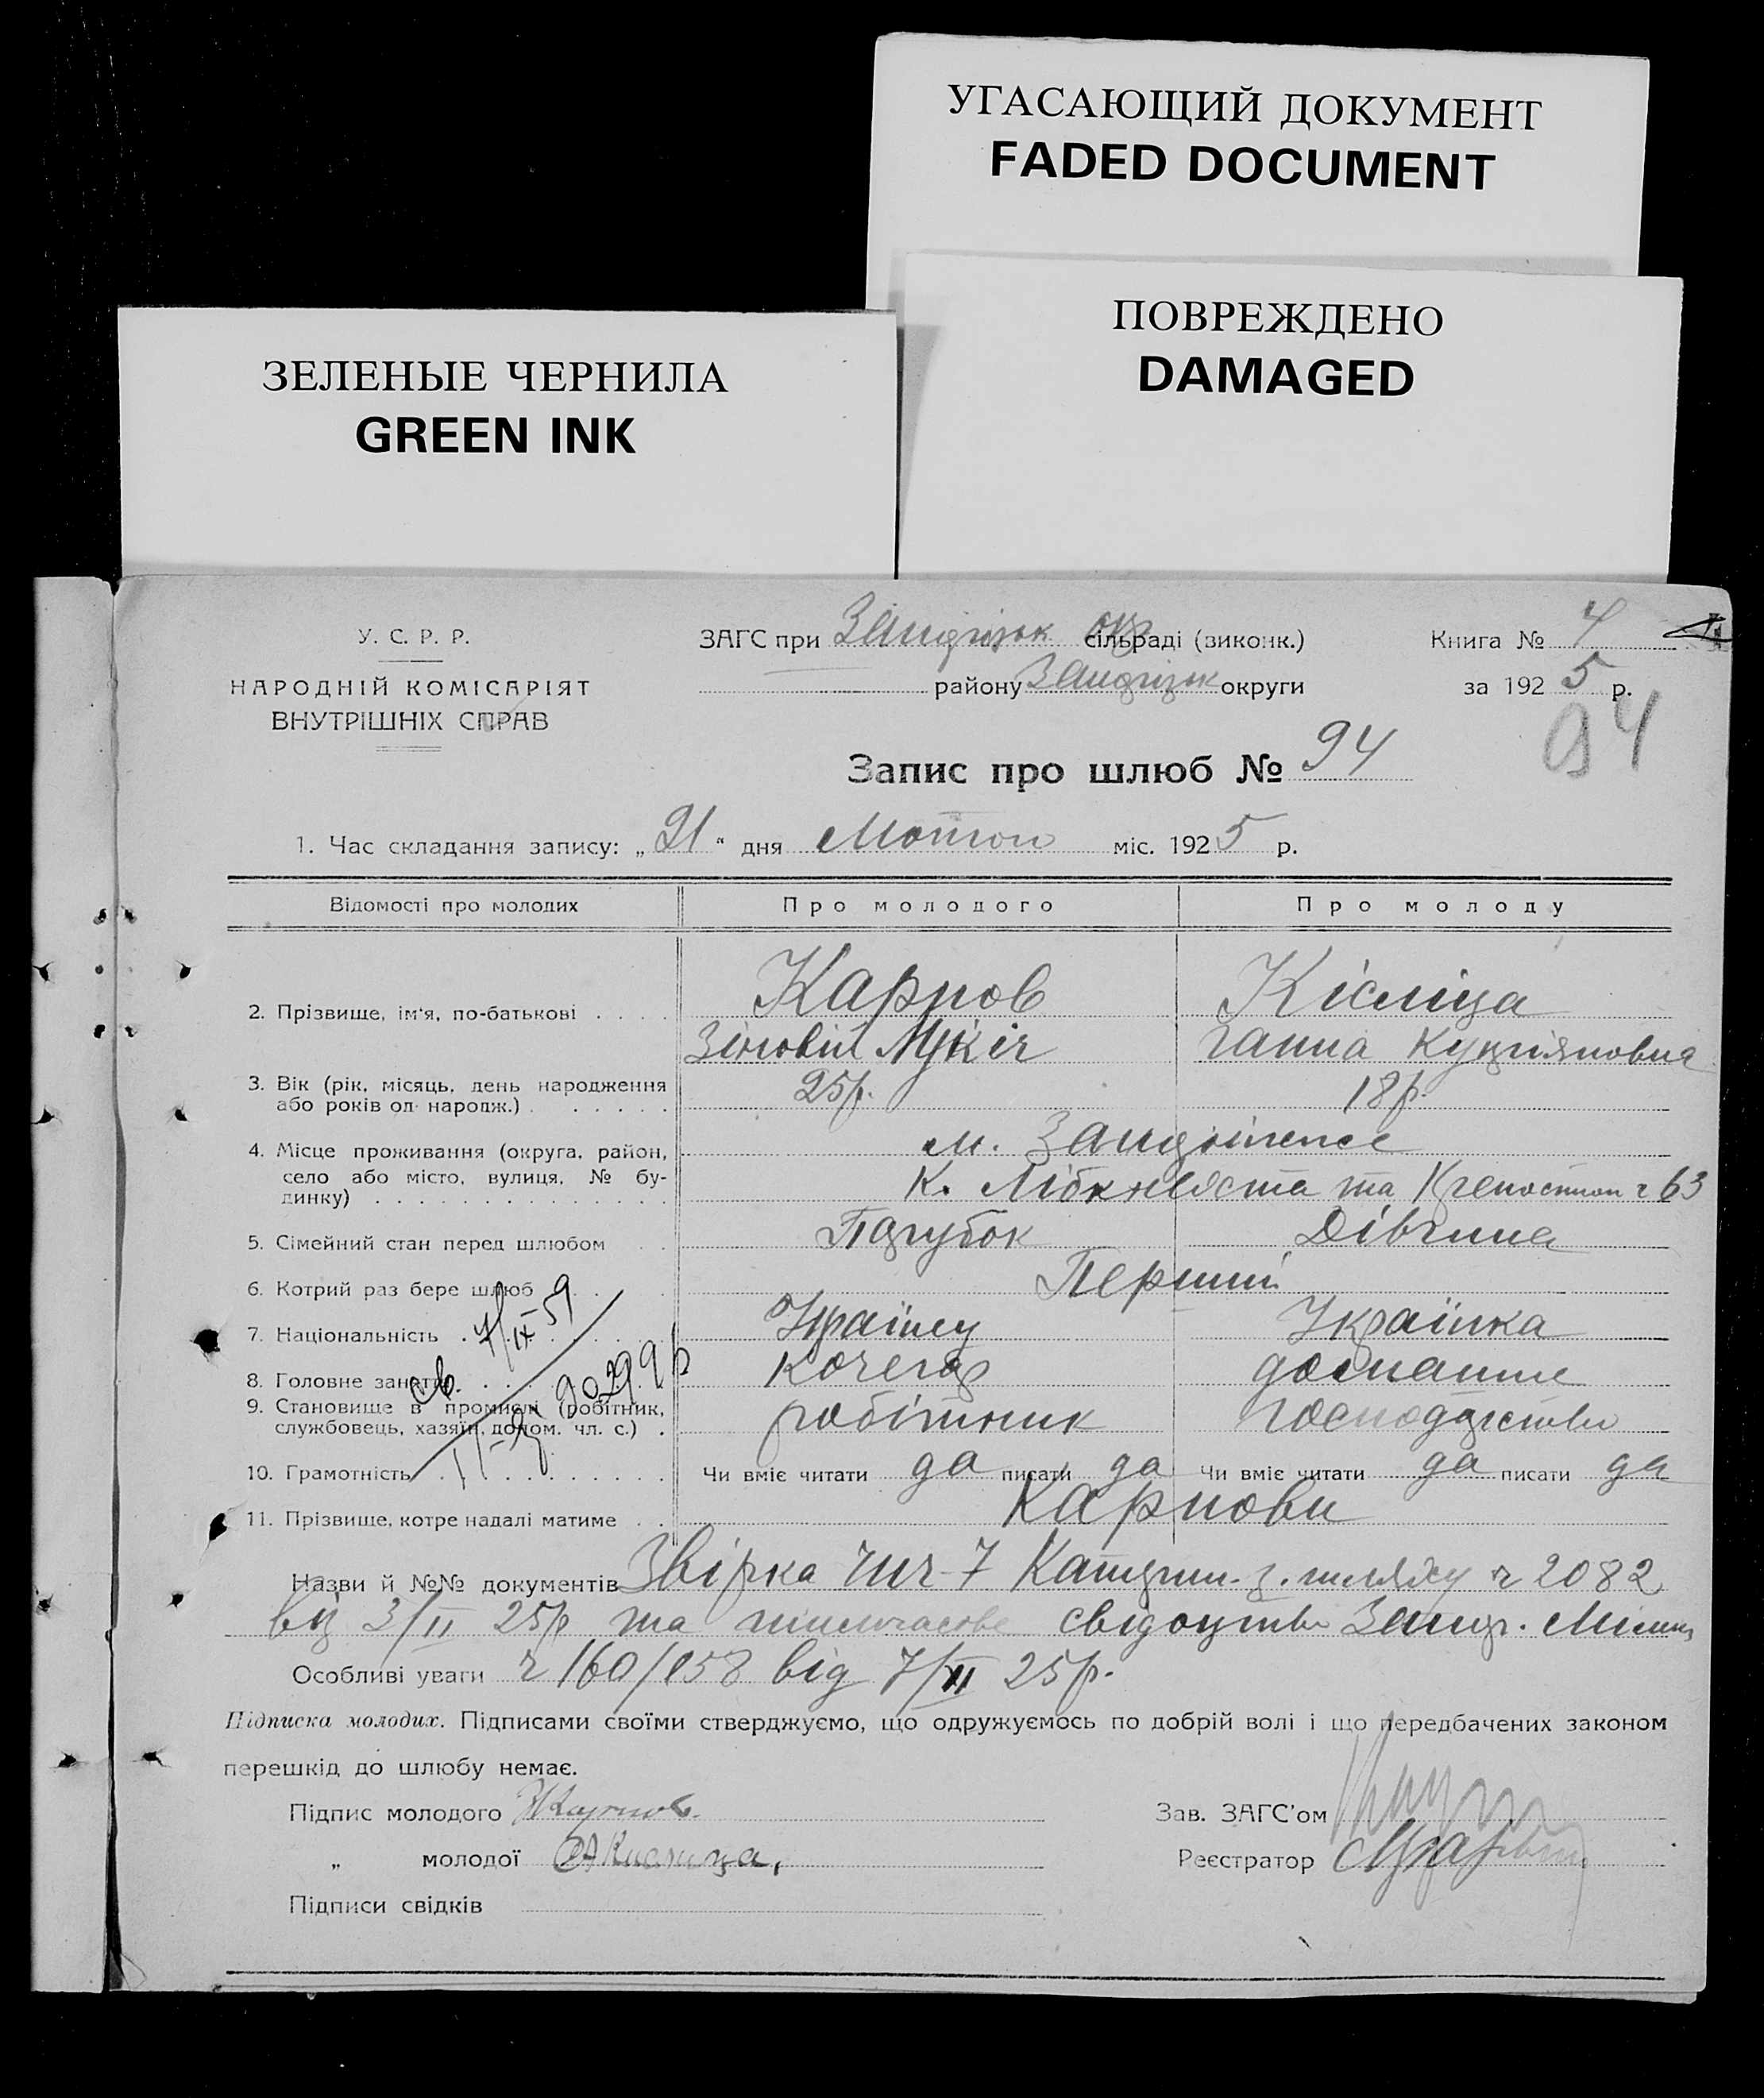 УГАСАЮЩИЙ ДОКУМЕНТ
FADED DOCUMENT
ПОВРЕЖДЕНО
DAMAGED
ЗЕЛЕНЫЕ ЧЕРНИЛА
GREEN INK
У. С. Р. Р.
НАРОДНІЙ КОМІСАРІЯТ
ВНУТРІШНІХ СПРАВ
ЗАГС при окр сільраді (виконк.)
району округи
Книга № 4
за 1925 р.
94
Запис про шлюб № 94
1. Час складання запису: „21“ дня міс. 1925 р.
Відомості про молодих Про молодого Про молоду
2. Прізвище, ім'я, по-батькові Карпов Кісліца
Зіновій Ганна
3. Вік (рік, місяць, день народження
або років од народж.) 25р. 18р.
4. Місце проживання (округа, район, м.
село або місто, вулиця, № бу-
динку) К. Лібкнехта та ч 63
5. Сімейний стан перед шлюбом Парубок Дівчина
6. Котрий раз бере шлюб Перший
7. Національність Українец Українка
7/IX 59
8. Головне заняття кочегар домашнє
св.
9. Становище в промислі (робітник,
службовець, хазяїн, допом. чл. с.) робітник господарство
10. Грамотність Чи вміє читати да писати да Чи вміє читати да писати да
11. Прізвище, котре надалі матиме Карпови
Назви й №№ документів ч 2082
від 3/II 25р та тимчасове свідоцтво
Особливі уваги ч 160/158 від 7/II 25р.
Підписка молодих. Підписами своїми стверджуємо, що одружуємось по добрій волі і що передбачених законом
перешкід до шлюбу немає.
Підпис молодого Карпов.
„ молодої Кислица,
Підписи свідків
Зав. ЗАГС'ом
Реєстратор